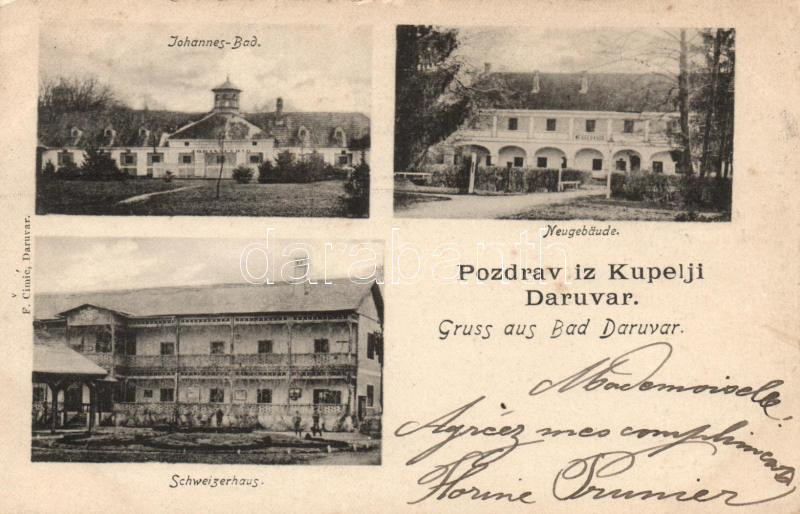 Johannes-Bad.
JOHANNESBAD
NEUGEBÄUDE
Neugebäude.
F. Čimić, Daruvar.
darabanth
Pozdrav iz Kupelji
Daruvar.
Gruss aus Bad Daruvar.
Schweizerhaus.
Mademoiselle,
Agréez mes compliments
Florine Prunier